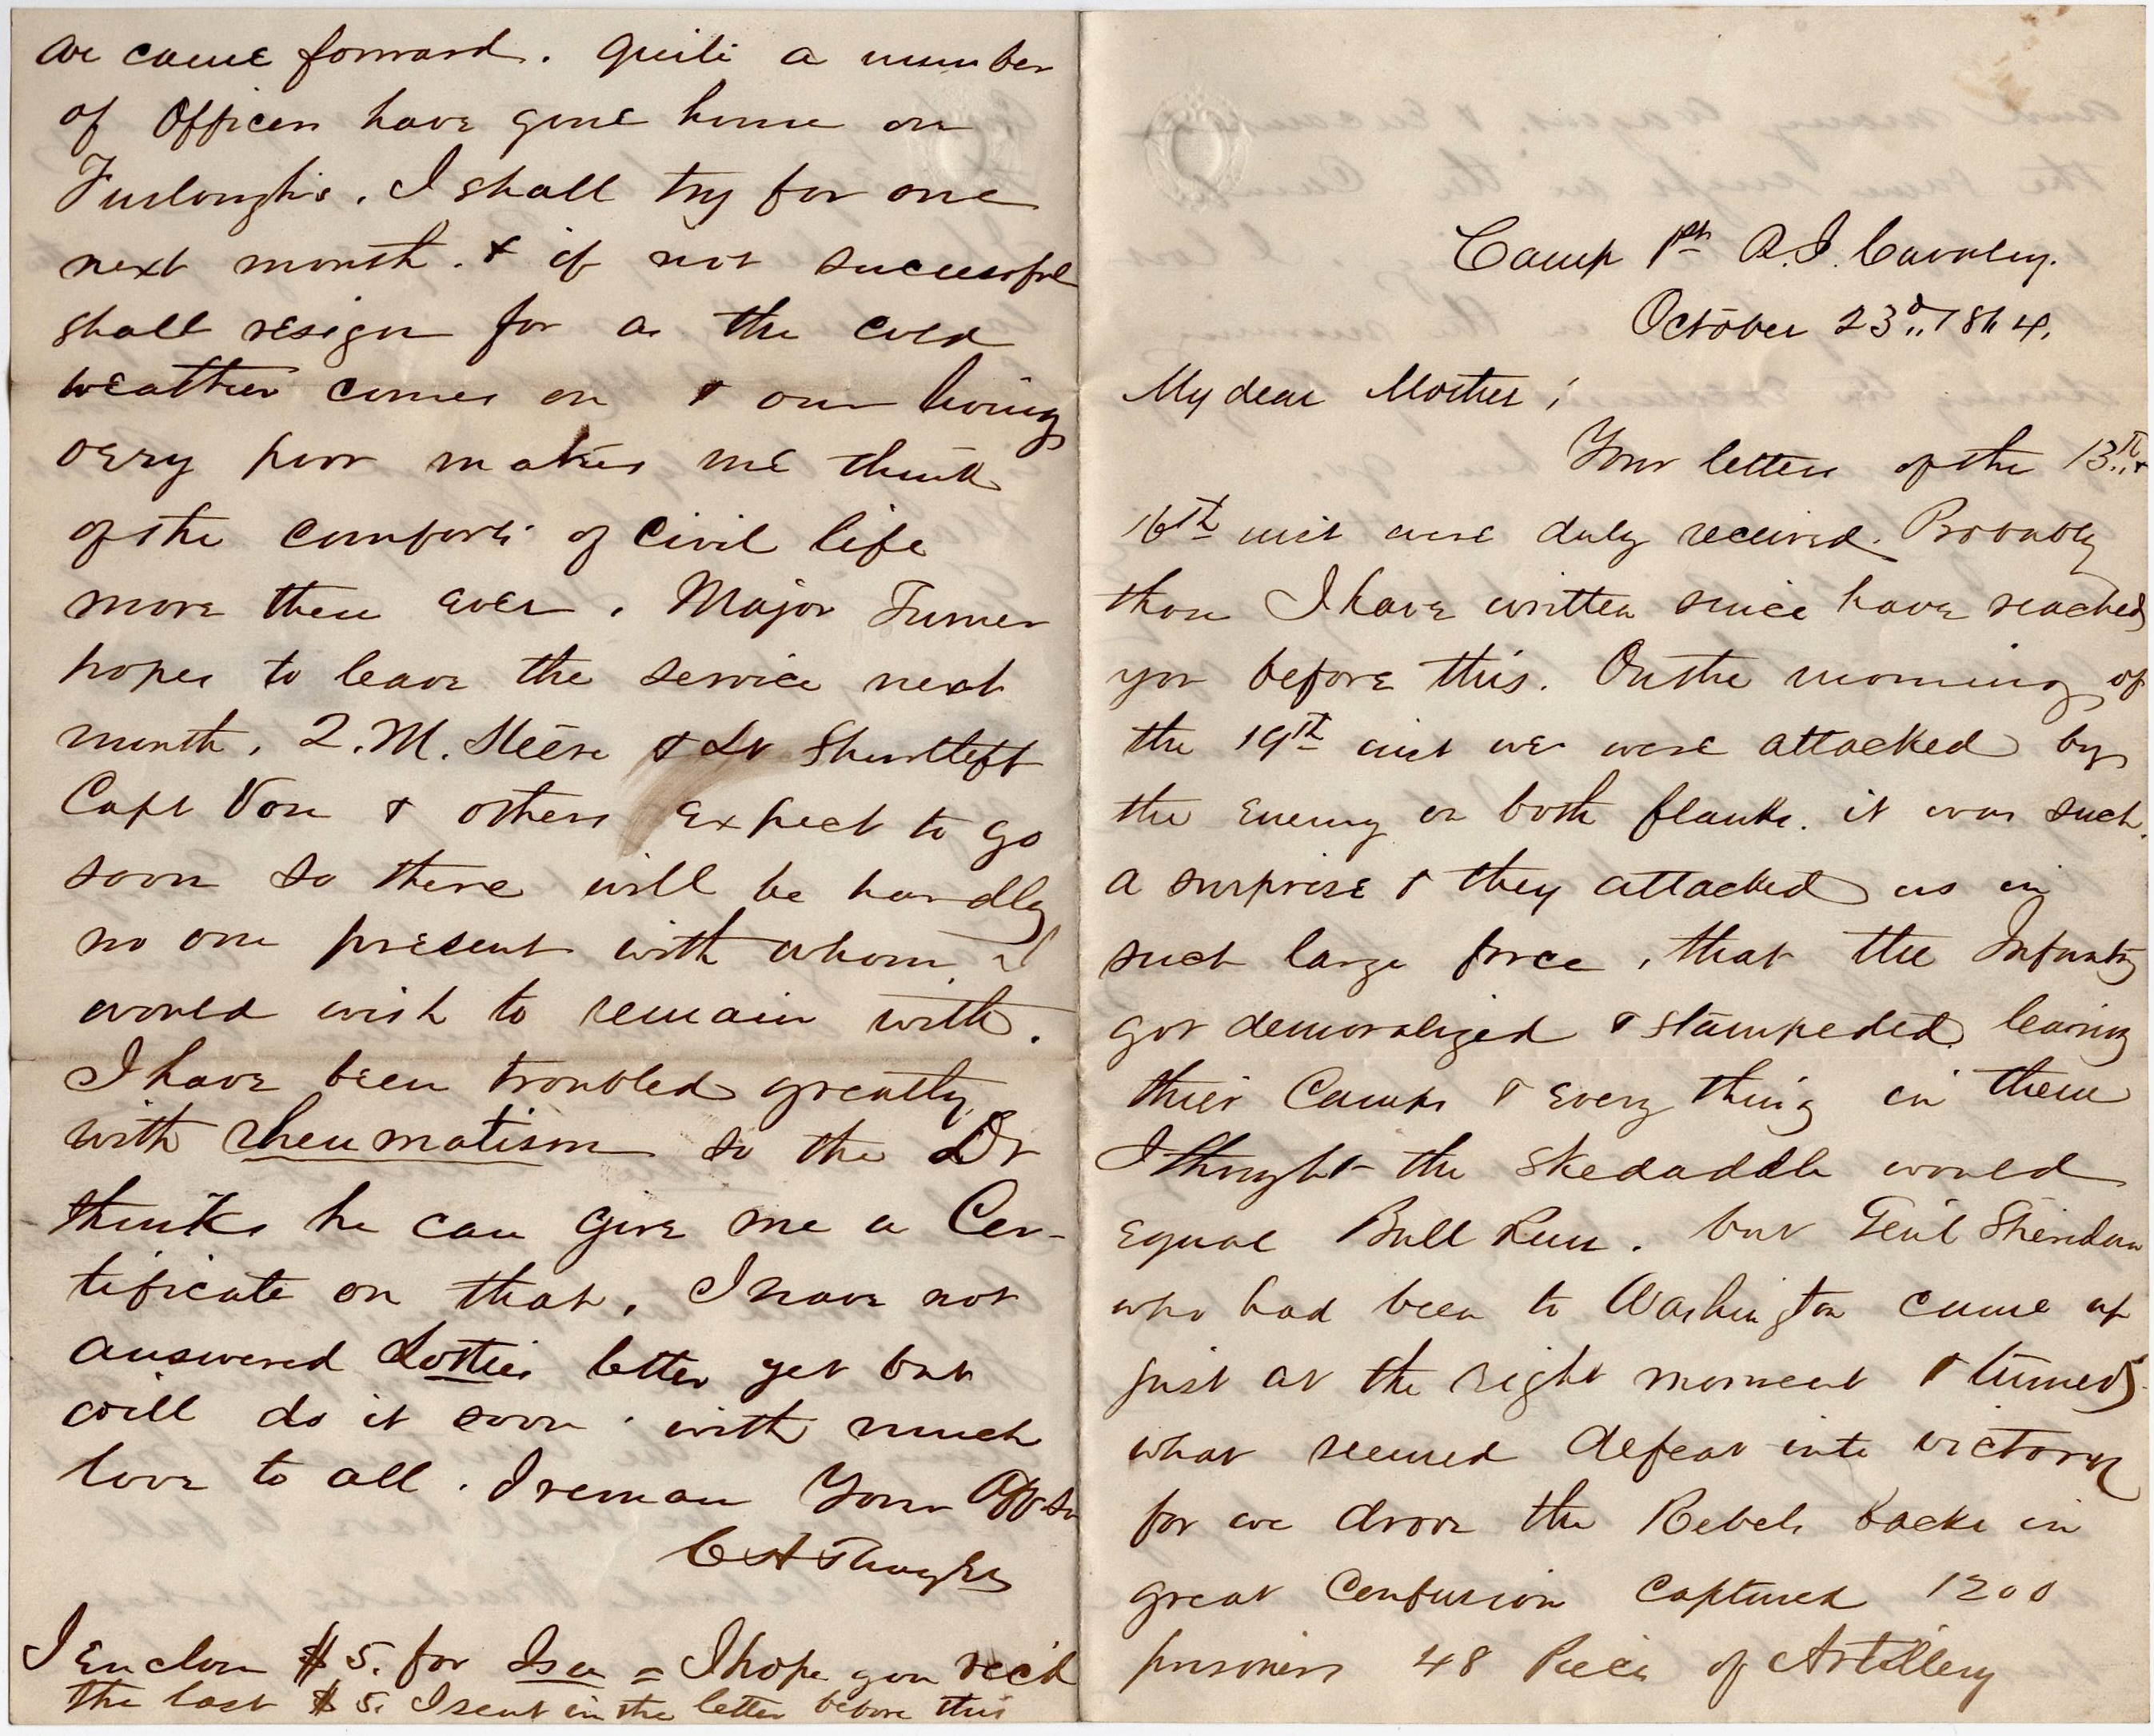 we came forward. Quite a number
of Officers have gone home on
Furloughs. I shall try for one
next month. & if not successful
shall resign for as the cold
weather comes on & our living
very poor makes me think
of the comforts of civil life
more then ever. Major Turner
hopes to leave the service next
month, Q.M. Steere & Dr Shurtleff
Capt Vose & others expect to go
soon so there will be hardly
no one present with whom I
would wish to remain with.
I have been troubled greatly
with rheumatism so the Dr
thinks he can give me a Cer-
tificate on that. I have not
answered Lotties letter yet but
will do it soon. with much
love to all. I remain Your Aff. Son
C A Thayer
I Enclose $5. for Isa = I hope you rec'd
the last $5. I sent in the letter before this
Camp 1st R.I. Cavalry.
October 23d,, 1864.
My dear Mother;
Your letters of the 13th,, &
16th inst were duly received. Probably
those I have written since have reached
you before this. On the morning of
the 19th inst we were attacked by
the Enemy on both flanks. it was such
a surprise & they attacked us in
such large force, that the Infantry
got demoralized & stampeded leaving
their Camps & Every thing in them
I thought the skedaddle would
Equal Bull Run. but Genl Sheridan
who had been to Washington came up
just at the right moment & turned
what seemed defeat into victory
for we drove the Rebels backe in
great Confusion Captured 1200
prisoners 48 Pieces of Artillery